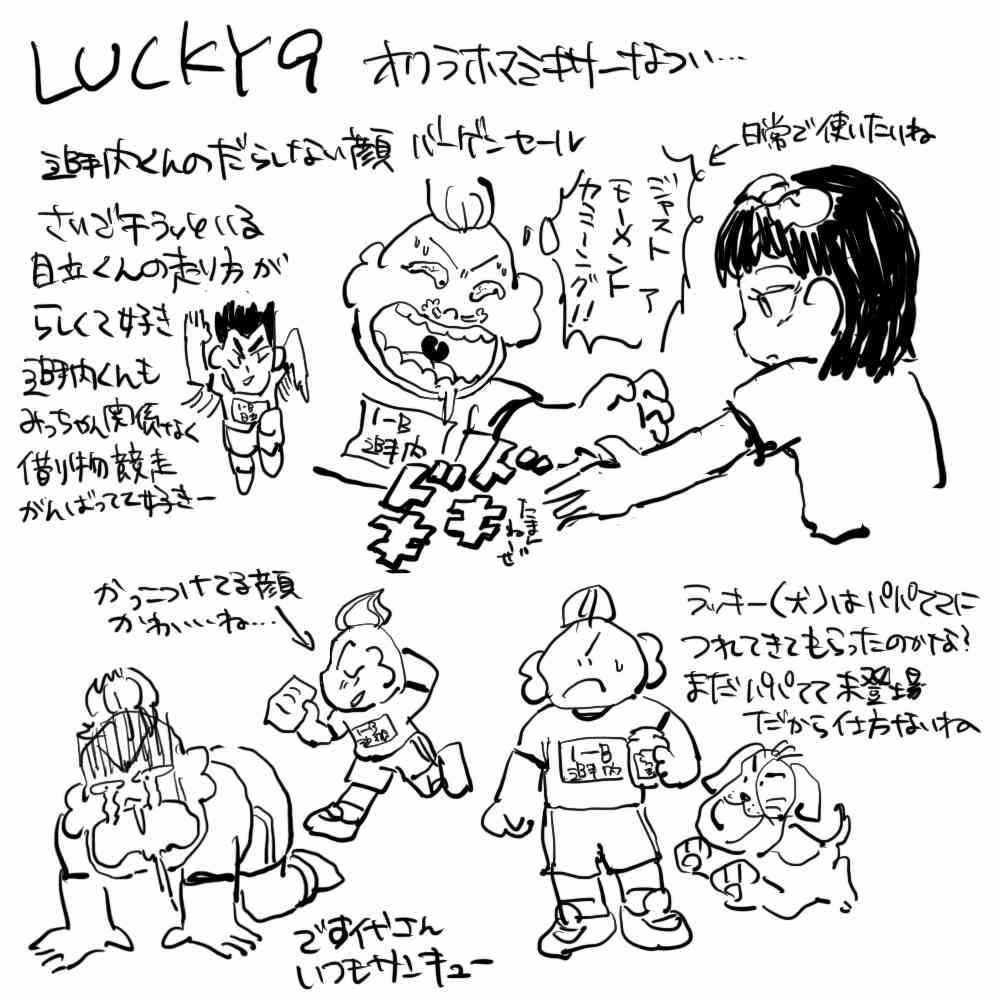 LUCKY9
オクラホマミキサーなつい…
内くんのだらしない顔 バーゲンセール
日常で使いたいね
ジャスト ア
モーメント
カミーング!!
さいごキラッといる
自立くんの走り方が
らしくて好き
内くんも
みっちゃん関係なく
借り物競走
がんばってて好きー
1-B
内
ドキ
ドキ
たまんねーぜ
かっこつけてる顔
かわいいね…
ラッキー(犬)はパパててに
つれてきてもらったのかな?
まだパパてて未登場
だから仕方ないわの
1-B
1-B
内
いつもサンキュー